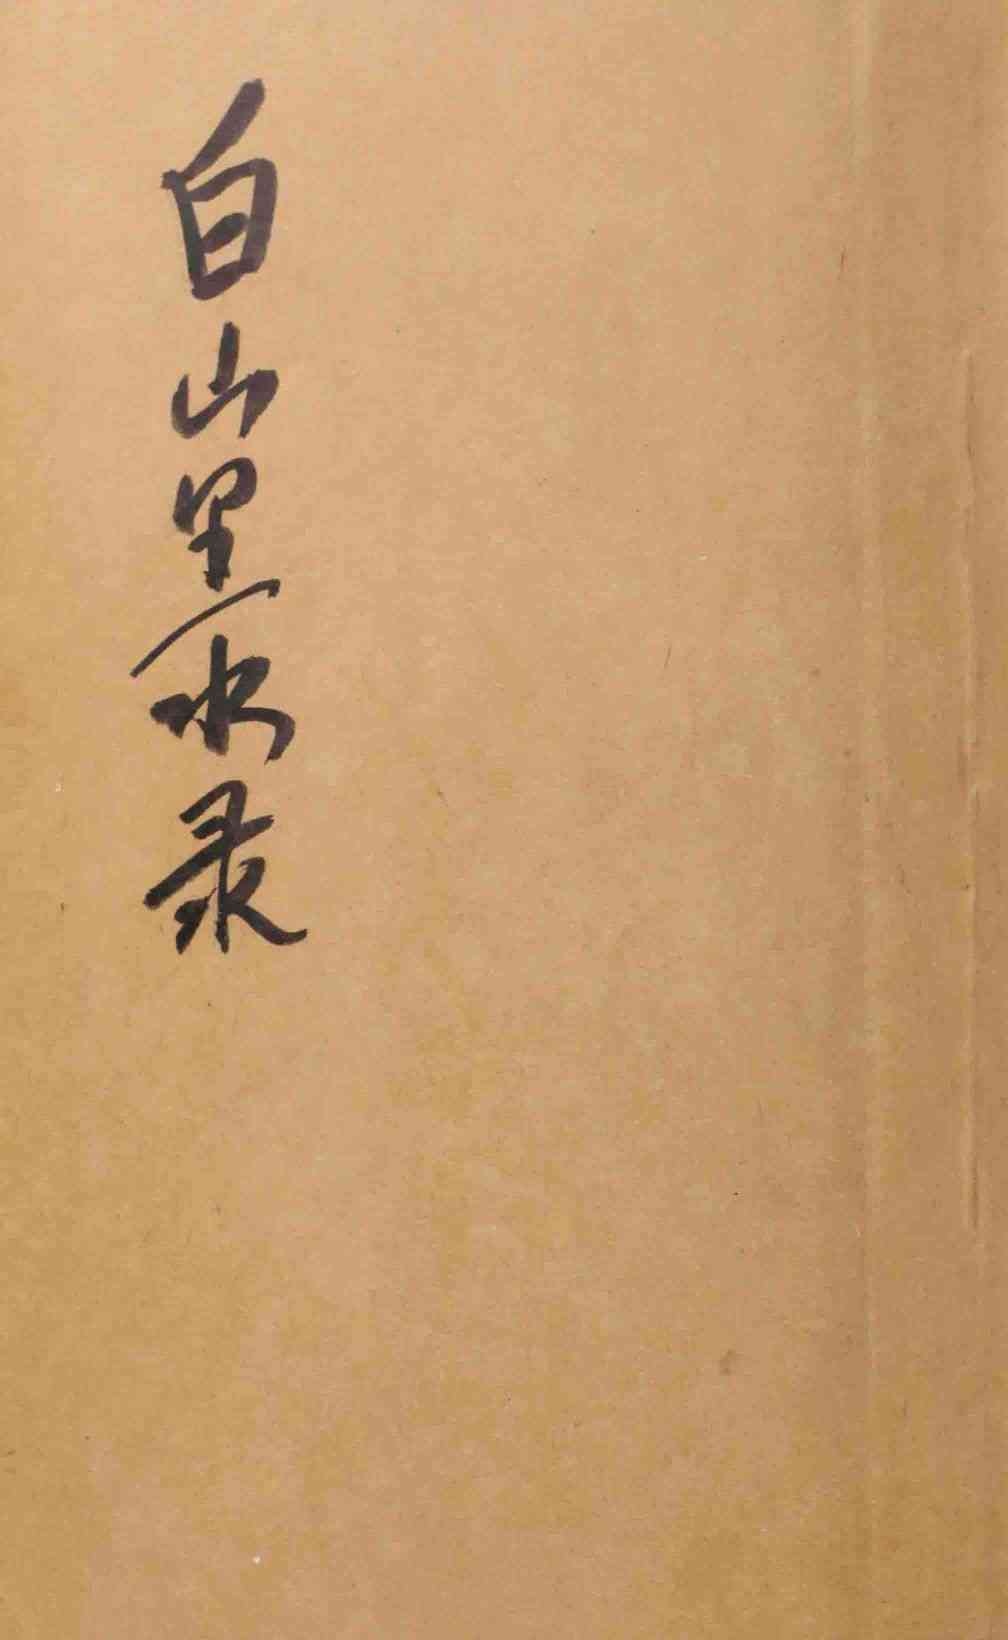 白山黑水录